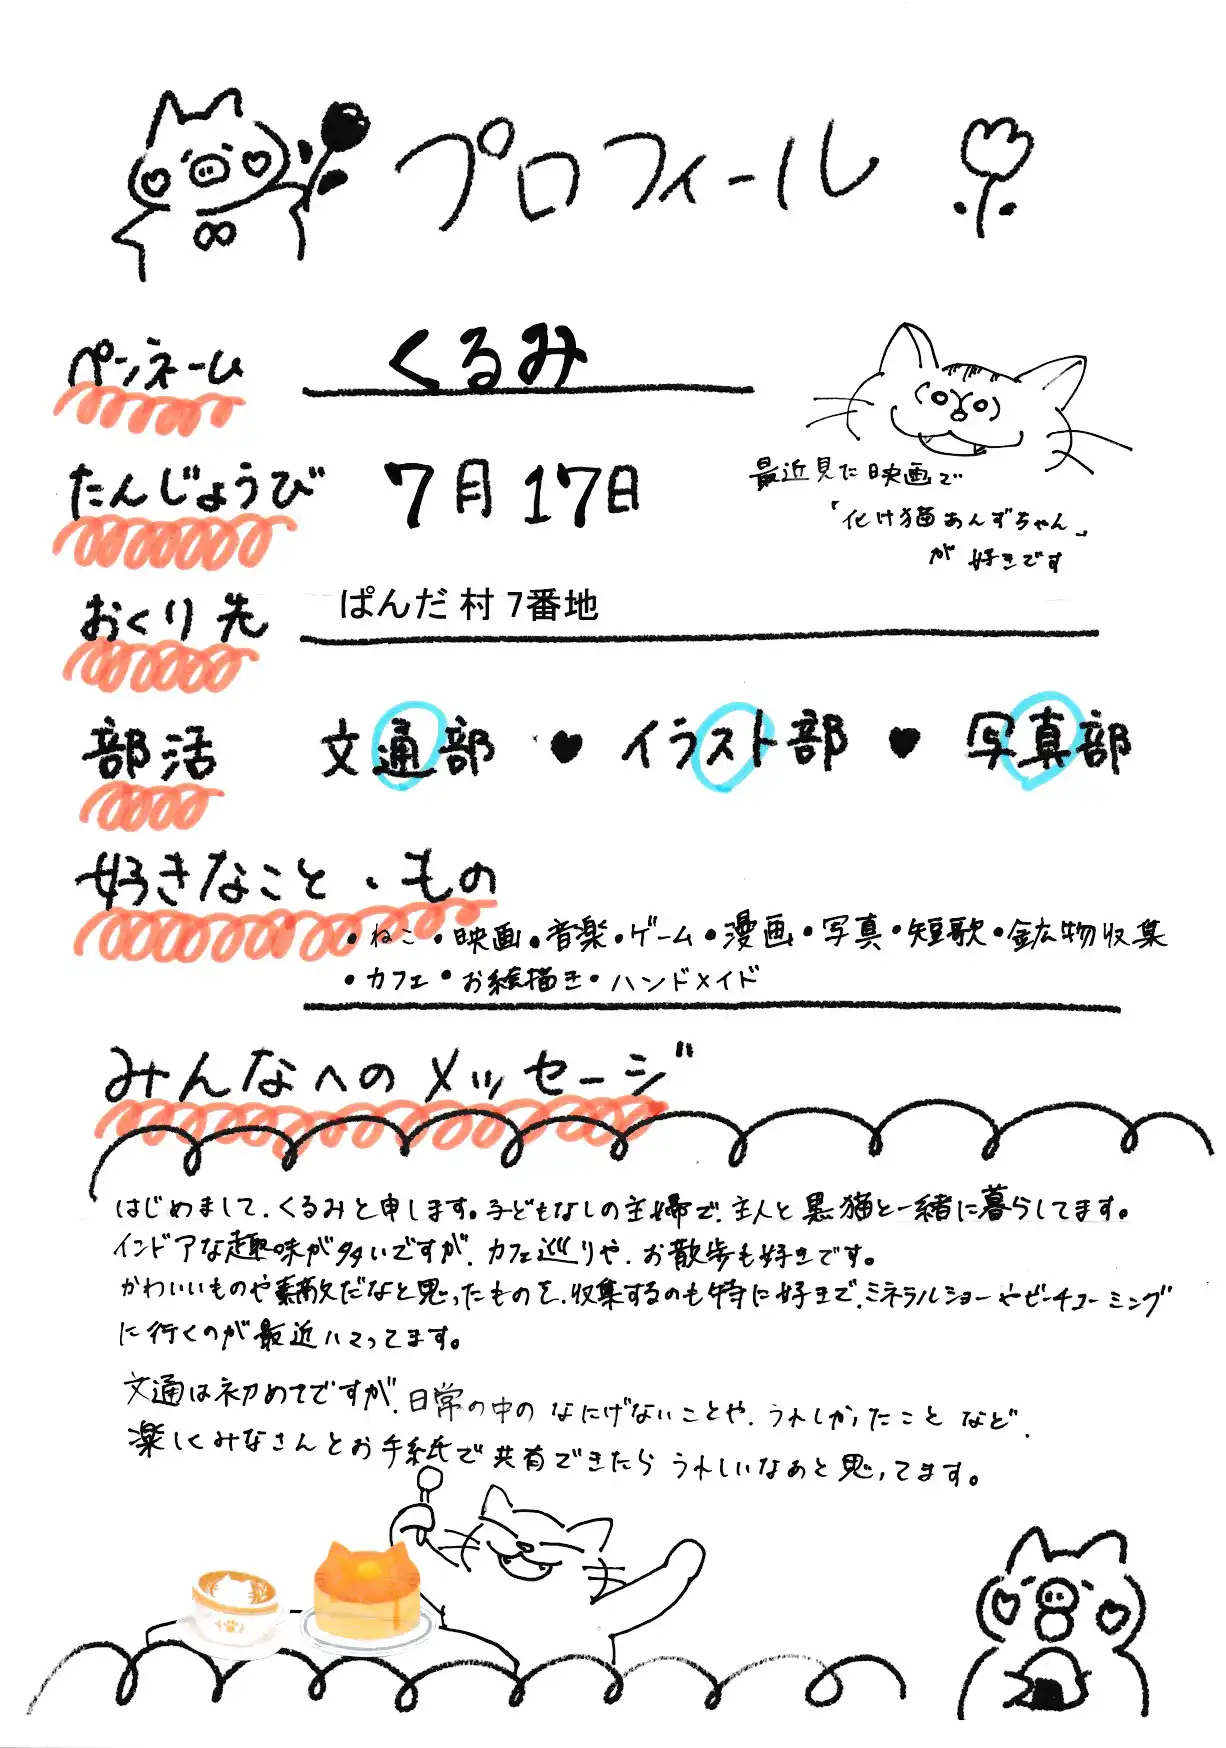 プロフィール
ペンネーム くるみ
たんじょうび 7月17日
最近見た映画で
「化け猫あんずちゃん」
が好きです
おくり先 ぱんだ村7番地
部活 文通部 ♥ イラスト部 ♥ 写真部
好きなこと・もの
・ねこ・映画・音楽・ゲーム・漫画・写真・短歌・鉱物収集
・カフェ・お絵描き・ハンドメイド
みんなへのメッセージ
はじめまして、くるみと申します。子どもなしの主婦で、主人と黒猫と一緒に暮らしてます。
インドアな趣味が多いですが、カフェ巡りや、お散歩も好きです。
かわいいものや素敵だなと思ったものを、収集するのも特に好きで、ミネラルショーやビーチコーミング
に行くのが最近ハマってます。
文通は初めてですが、日常の中のなにげないことや、うれしかったことなど、
楽しくみなさんとお手紙で共有できたらうれしいなぁと思ってます。